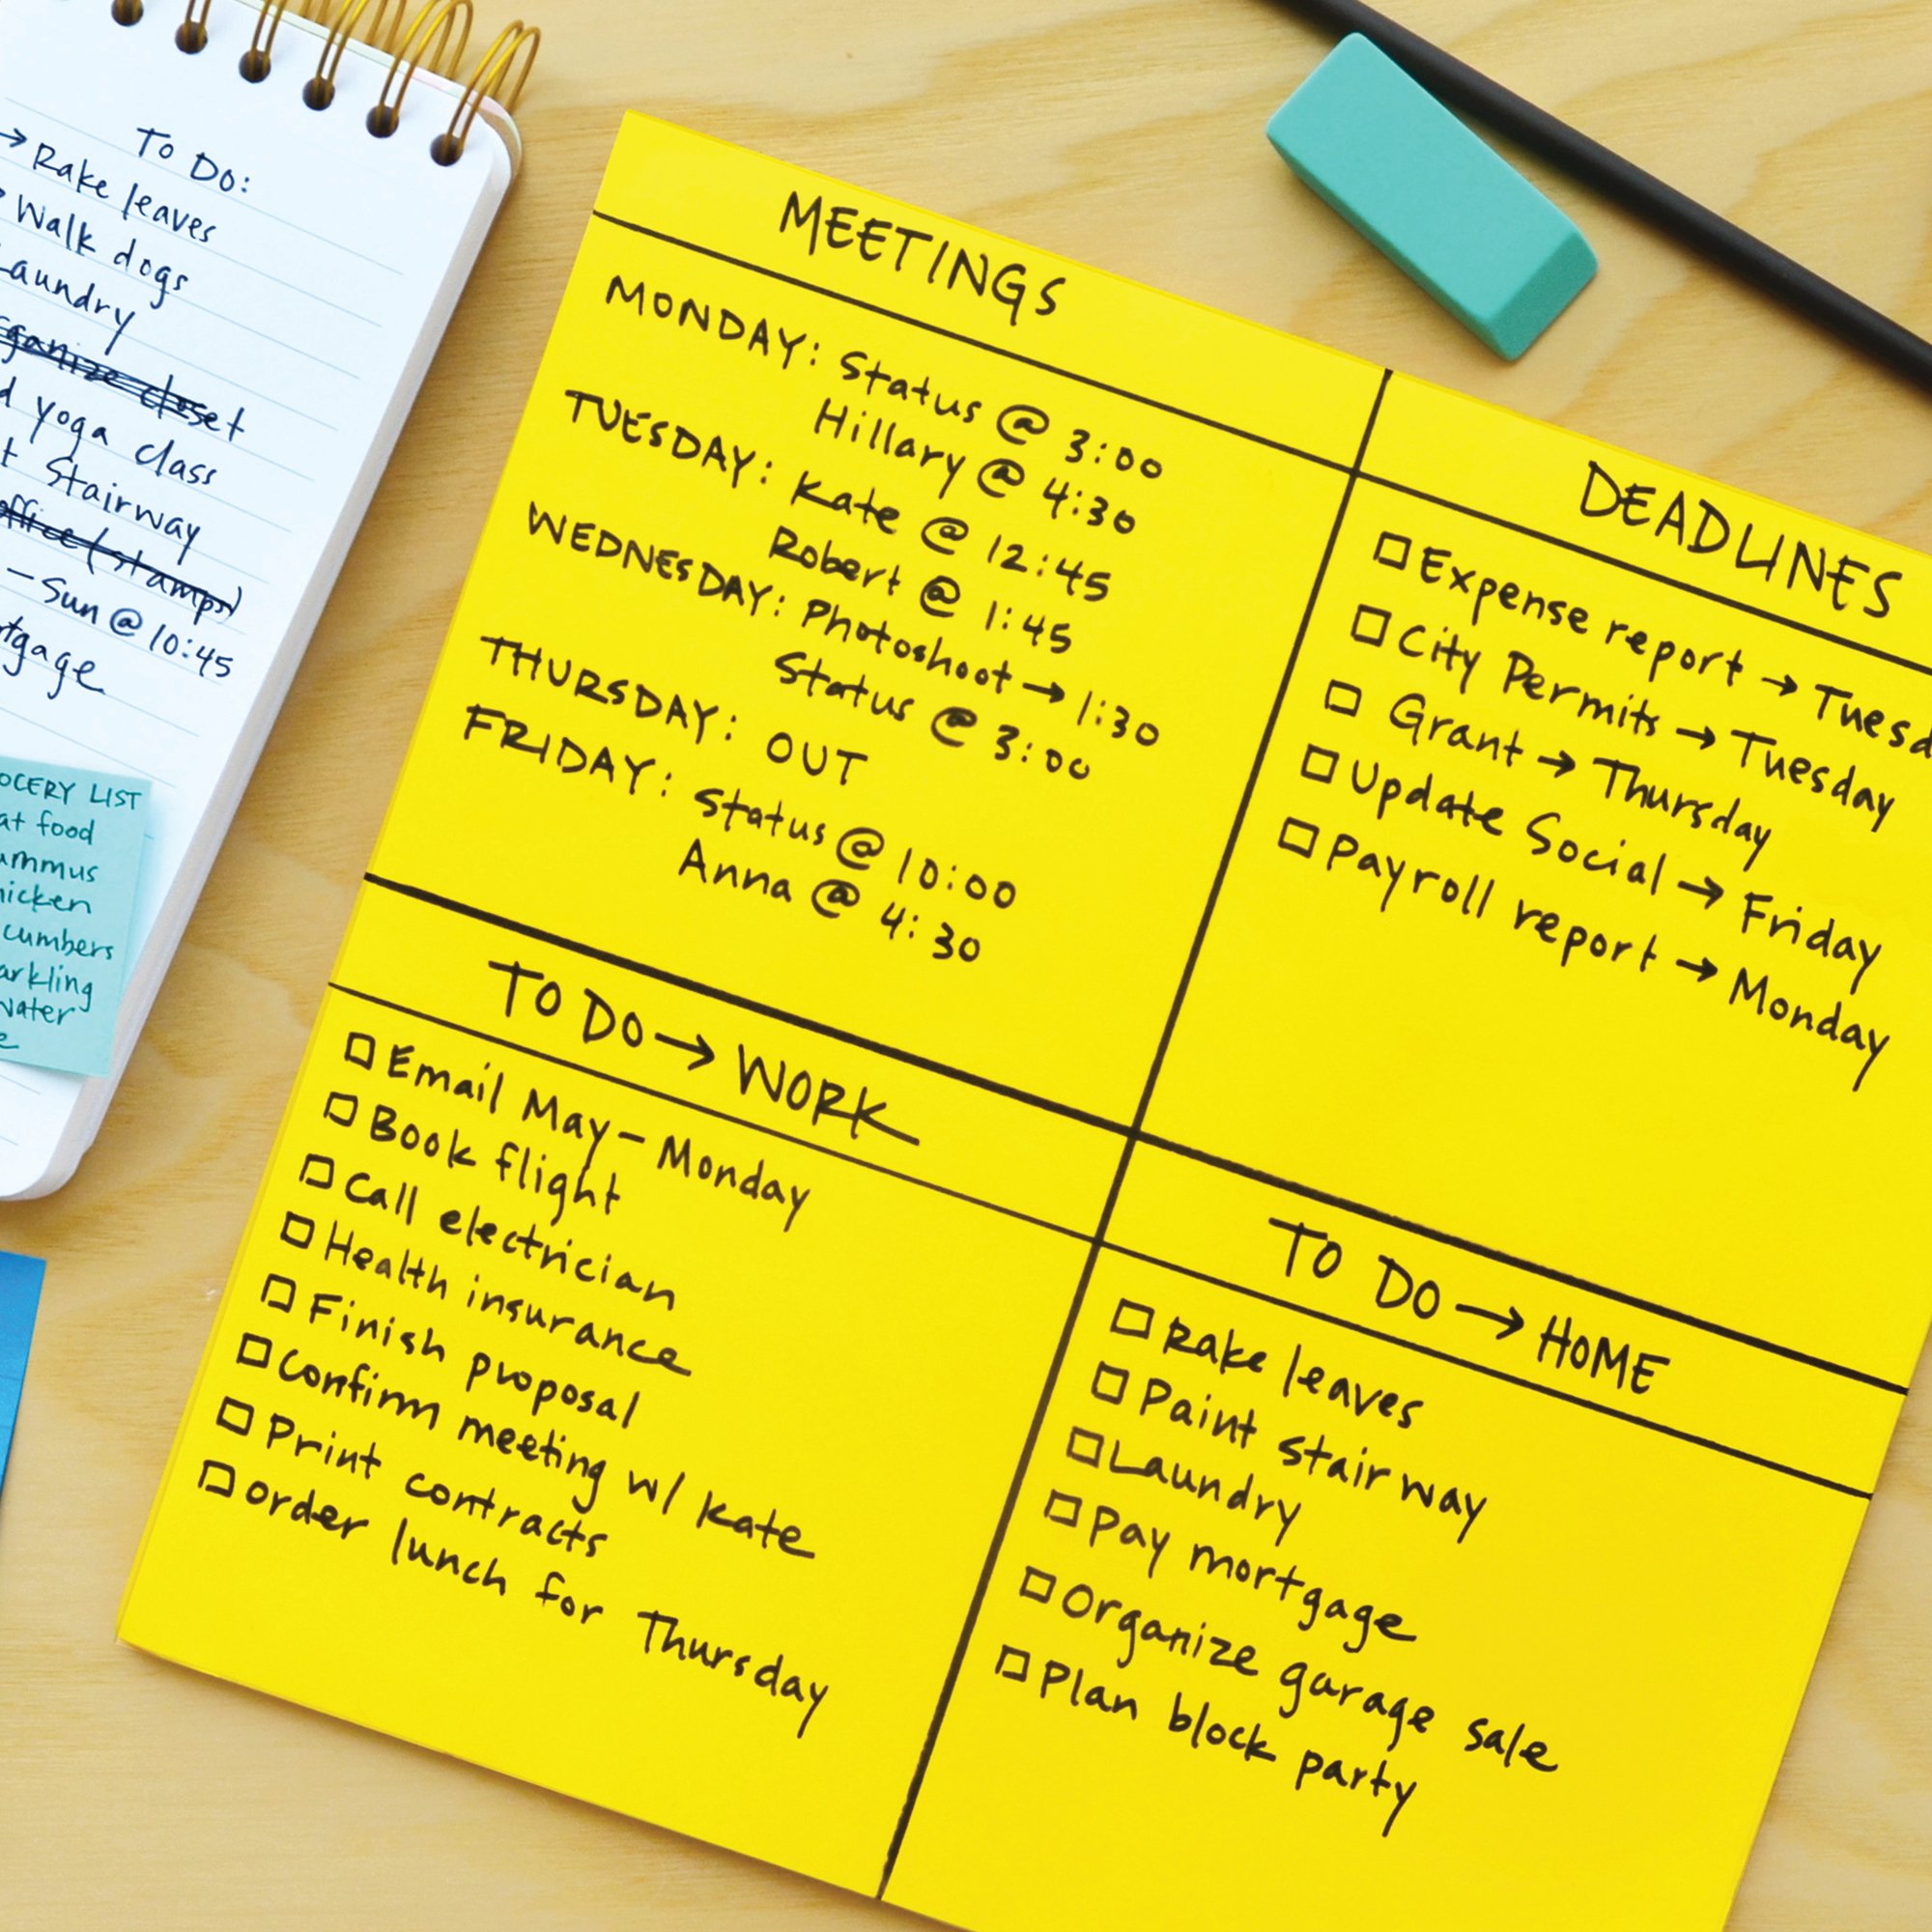 To Do:
→ Rake leaves
Walk dogs
Laundry
organize closet
yoga class
Stairway
office (stamps)
- Sun @ 10:45
GROCERY LIST
food
MEETINGS
MONDAY: Status @ 3:00
Hillary @ 4:30
TUESDAY: Kate @ 12:45
Robert @ 1:45
WEDNESDAY: Photoshoot → 1:30
Status @ 3:00
THURSDAY: OUT
FRIDAY: Status @ 10:00
Anna @ 4:30
DEADLINES
Expense report → Tuesd
City Permits → Tuesday
Grant → Thursday
Update Social → Friday
Payroll report → Monday
TO DO → WORK
Email May - Monday
Book flight
Call electrician
Health insurance
Finish proposal
Confirm meeting w/ Kate
Print contracts
Order lunch for Thursday
TO DO → HOME
Rake leaves
Paint stairway
Laundry
Pay mortgage
Organize garage sale
Plan block party